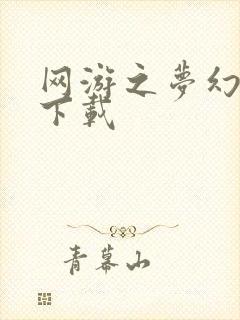 网游之夢幻
下載
青幕山